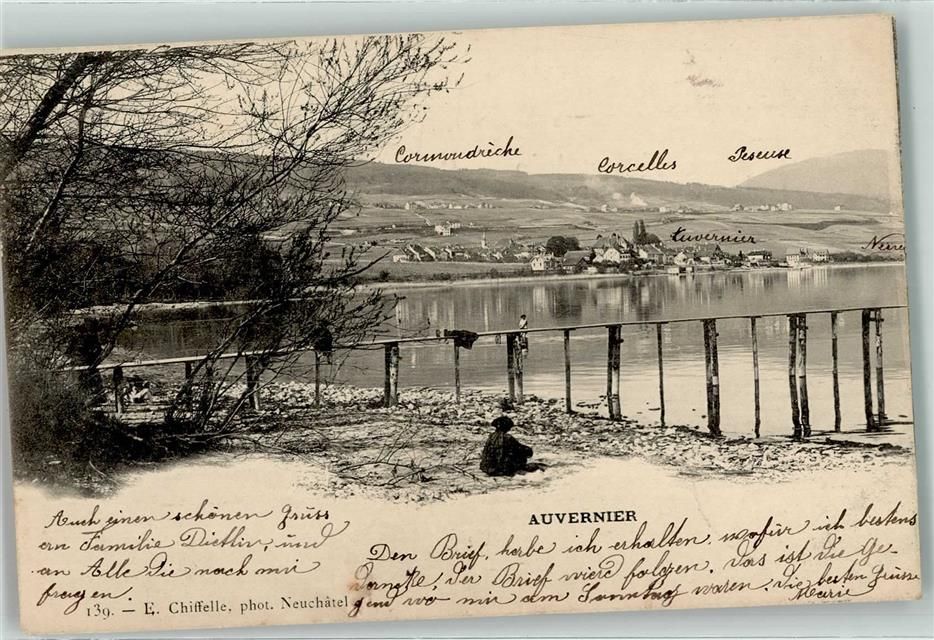 Cormondrèche
Corcelles
Peseuse
Auvernier
AUVERNIER
Auch einen schönen Gruss
an Familie Dietlin, und
an Alle die nach mir
fragen.
Den Brief habe ich erhalten, wofür ich bestens
danke, der Brief wird folgen, das ist die Ge-
gend wo mir am Sonntag waren. die besten Grüsse
Marie
139. — E. Chiffelle, phot. Neuchâtel